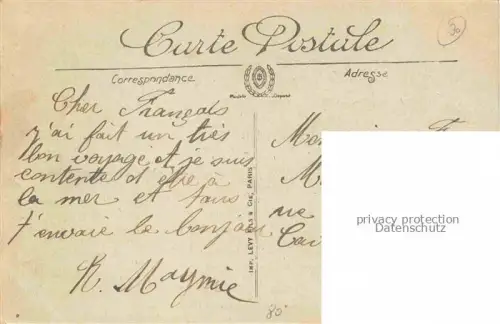 80
Carte Postale
Correspondance
Adresse
Cher Français
j'ai fait un très
bon voyage et je suis
contente d'être à
la mer et
t'envoie le bonjour
K. Maymie
IMP. LEVY FILS & Cie, PARIS
privacy protection
Datenschutz
80